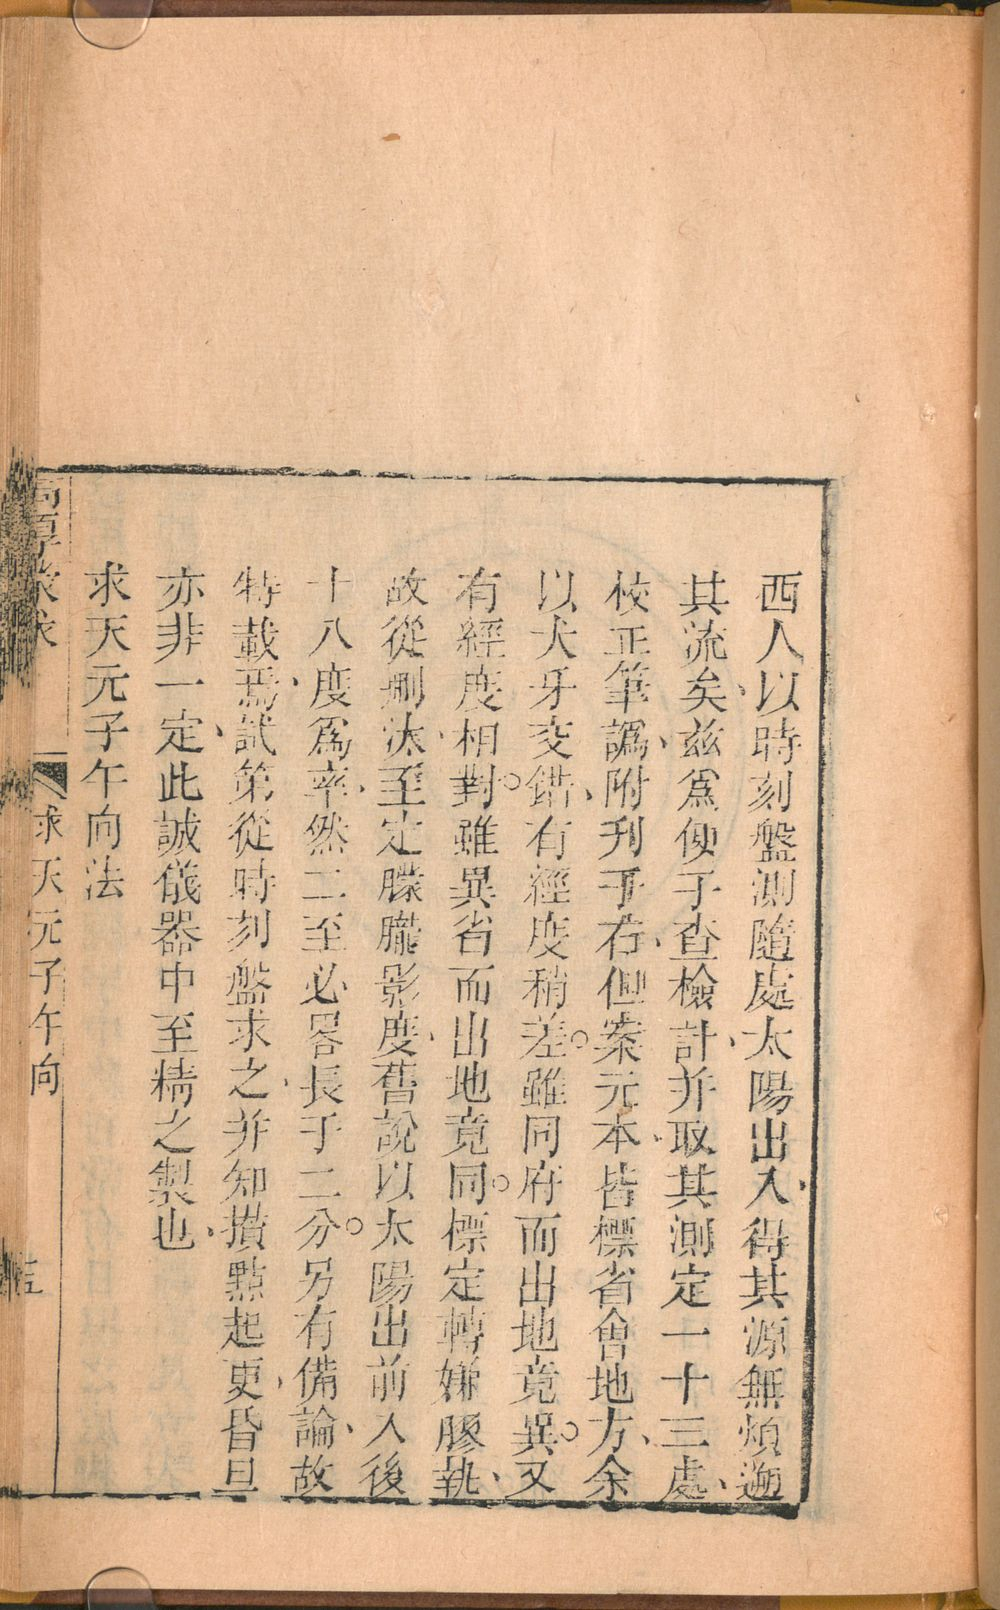 西人以時刻盤測隨處太陽出入、得其源無煩遡
其流矣、茲爲便于查檢計、并取其測定一十三處、
校正筆譌、附刋于右、但案元本、皆標省會地方、余
以犬牙交錯、有經度稍差。雖同府而出地竟異。又
有經度相對。雖異省而出地竟同。標定轉嫌膠執、
故從刪汰、至定朦朧影度、舊說以太陽出前入後
十八度爲率、然二至必畧長于二分。另有備論、故
特載焉、試第從時刻盤求之、并知攢點起更、昏旦
亦非一定、此誠儀器中至精之製也、
求天元子午向法
高厚蒙求
求天元子午向